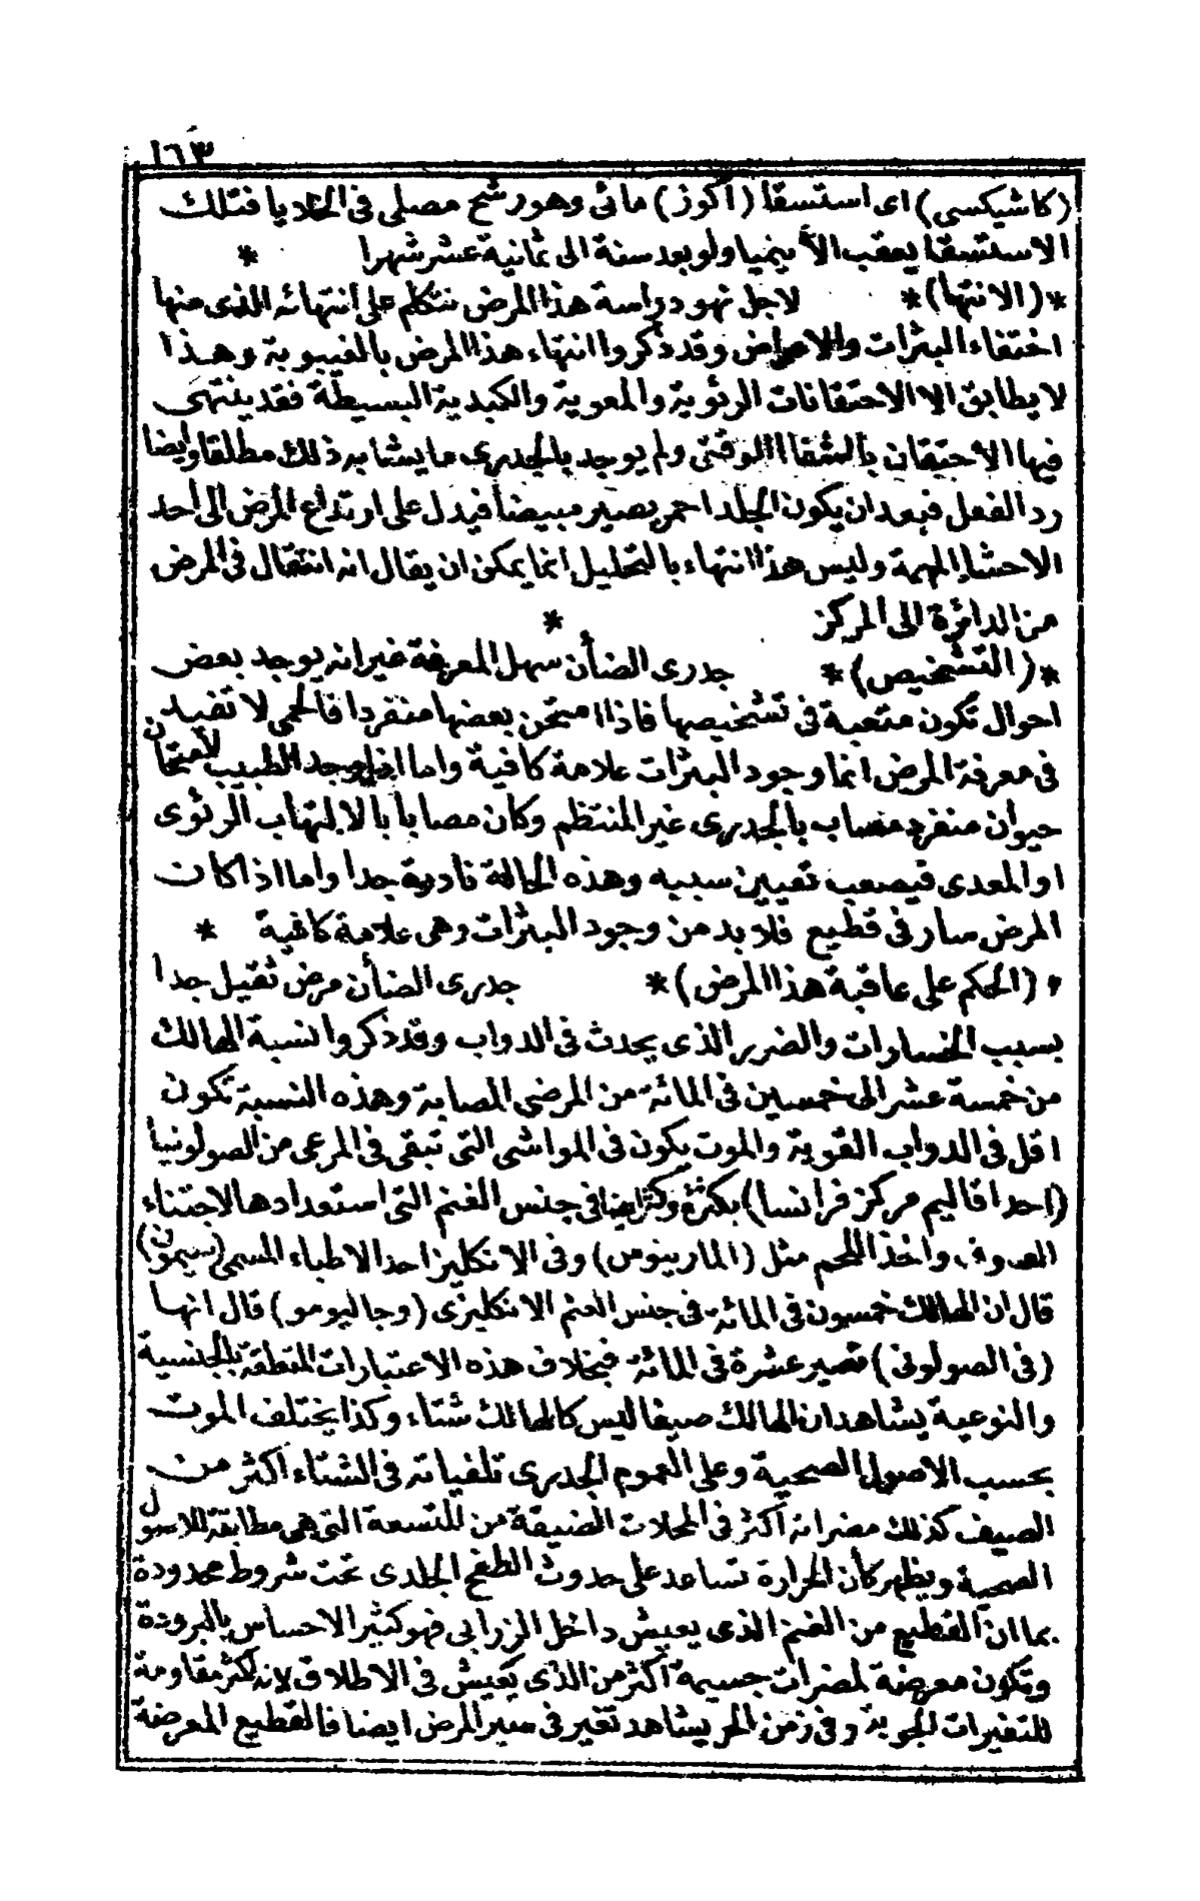 ١٦٣
(كاشيكسى) اى استسقا (اكوز) مائى وهو رشح مصلى فى الخلايا فتلك
الاستسقا يعقب الأنيميا ولو بعد سنة الى ثمانية عشر شهرا *
*(الانتها)* لاجل نهو دراسة هذا المرض نتكلم على انتهائه الذى منها
اختفاء البثرات والاعراض وقد ذكروا انتهاء هذا المرض بالغيبوبة وهذا
لا يطابق الا الاحتقانات الرئوية والمعوية والكبدية البسيطة فقد ينتهى
فيها الاحتقان بالشفا الوقتى ولم يوجد بالجدرى ما يشابه ذلك مطلقا وايضا
رد الفعل فبعد ان يكون الجلد احمر يصير مبيضا فيدل على ارتداع المرض الى أحد
الاحشا المهمة وليس هذا انتهاء بالتحليل انما يمكن ان يقال انه انتقال فى المرض
من الدائرة الى المركز *
*(التشخيص)* جدرى الضأن سهل المعرفة غير انه يوجد بعض
احوال تكون متعبة فى تشخيصها فاذا امتحن بعضها منفردا فالحمى لا تفيد
فى معرفة المرض انما وجود البثرات علامة كافية واما اذا وجد الطبيب لامتحان
حيوان منفرد مصاب بالجدرى غير المنتظم وكان مصابا بالالتهاب الرئوى
او المعدى فيصعب تعيين سببه وهذه الحالة نادرة جدا واما اذا كان
المرض سار فى قطيع فلا بد من وجود البثرات وهى علامة كافية *
*(الحكم على عاقبة هذا المرض)* جدرى الضأن مرض ثقيل جدا
بسبب الخسارات والضرر الذى يحدث فى الدواب وقد ذكروا نسبة الهالك
من خمسة عشر الى خمسين فى المائة من المرضى المصابة وهذه النسبة تكون
اقل فى الدواب القوية والموت يكون فى المواشى التى تبقى فى المرعى من الصولونيا
(احد اقاليم مركز فرانسا) بكثرة وكثر ايضا فى جنس الغنم التى استعدادها لاجتناء
الصوف واخذ اللحم مثل (المارينوس) وفى الانكليز احد الاطباء المسمى (سيمون)
قال ان الهالك خمسون فى المائة فى جنس الغنم الانكليزى (وجاليومو) قال انها
(فى الصولونى) تصير عشرة فى المائة فبخلاف هذه الاعتبارات المتعلقة بالجنسية
والنوعية يشاهد ان الهالك صيفا ليس كالهالك شتاء وكذا يختلف الموت
بحسب الاصول الصحية وعلى العموم الجدرى تلفياته فى الشتاء اكثر من
الصيف كذلك مضراته اكثر فى المحلات الضيقة من المتسعة التى هى مطابقة للاصول
الصحية ويظهر كأن الحرارة تساعد على حدوث الطفح الجلدى تحت شروط محدودة
بما ان القطيع من الغنم الذى يعيش داخل الزرابى فهو كثير الاحساس بالبرودة
وتكون معرضة لمضرات جسيمة اكثر من الذى يعيش فى الاطلاق لانه اكثر مقاومة
للتغيرات الجوية وفى زمن الحر يشاهد تغير فى سير المرض ايضا فالقطيع المعرضة